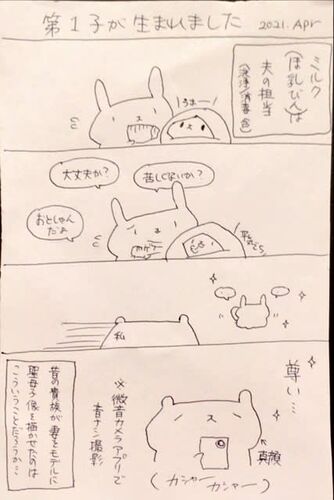 第1子が生まれました 2021.Apr
ミルク
(ほ乳びん)は
夫の担当
(洗浄/消毒含)
うまー
大丈夫か?
苦しくないか?
おとしゃん
だよ
私
尊い…
真顔
※微音カメラアプリで
音ナシ撮影
(カシャー
カシャー)
昔の貴族が妻をモデルに
聖母子像を描かせたのは
こういうことだろうか…